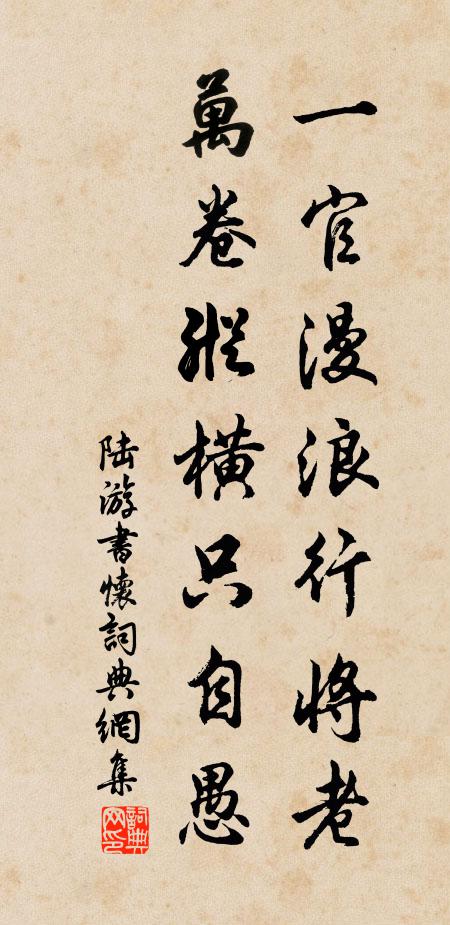 一官漫浪行将老
萬卷縱橫只自愚
陆游書懷詞典網集
詞典网印